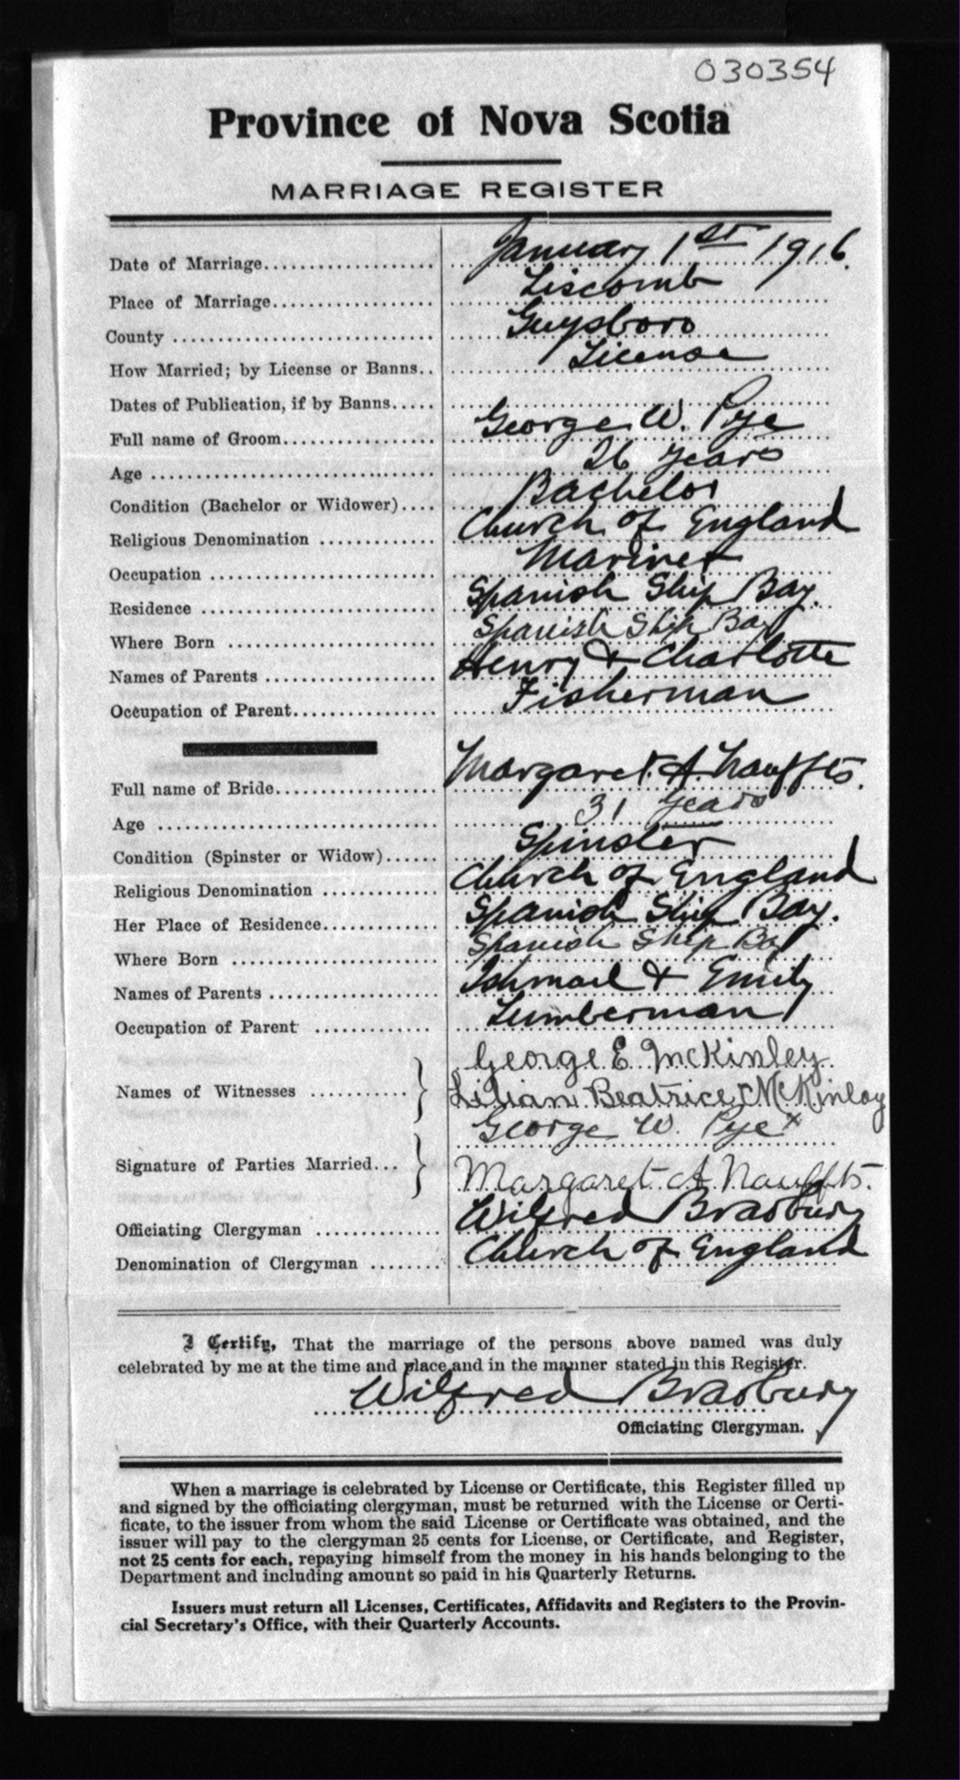 030354
Province of Nova Scotia
MARRIAGE REGISTER
Date of Marriage.................... January 1st 1916.
Place of Marriage................... Liscomb
County .............................. Guysboro
How Married; by License or Banns.. License
Dates of Publication, if by Banns.....
Full name of Groom.................. George W. Pye
Age ................................. 26 years
Condition (Bachelor or Widower).... Bachelor
Religious Denomination ............. Church of England
Occupation .......................... Mariner
Residence ........................... Spanish Ship Bay.
Where Born ........................ Spanish Ship Bay
Names of Parents .................... Henry & Charlotte
Occupation of Parent................. Fisherman
Full name of Bride................... Margaret A. Nauffts.
Age ................................. 31 years
Condition (Spinster or Widow)...... Spinster
Religious Denomination ............. Church of England
Her Place of Residence............. Spanish Ship Bay.
Where Born ........................ Spanish Ship Bay
Names of Parents .................... Ishmael & Emily
Occupation of Parent .............. Lumberman
George E. McKinley.
Names of Witnesses ........... } Lilian Beatrice McKinlay
George W. Pye x
Signature of Parties Married... } Margaret A Nauffts.
Officiating Clergyman .............. Wilfred Bradbury
Denomination of Clergyman ........ Church of England
I Certify, That the marriage of the persons above named was duly
celebrated by me at the time and place and in the manner stated in this Register.
Wilfred Bradbury
Officiating Clergyman.
When a marriage is celebrated by License or Certificate, this Register filled up
and signed by the officiating clergyman, must be returned with the License or Certi-
ficate, to the issuer from whom the said License or Certificate was obtained, and the
issuer will pay to the clergyman 25 cents for License, or Certificate, and Register,
not 25 cents for each, repaying himself from the money in his hands belonging to the
Department and including amount so paid in his Quarterly Returns.
Issuers must return all Licenses, Certificates, Affidavits and Registers to the Provin-
cial Secretary's Office, with their Quarterly Accounts.